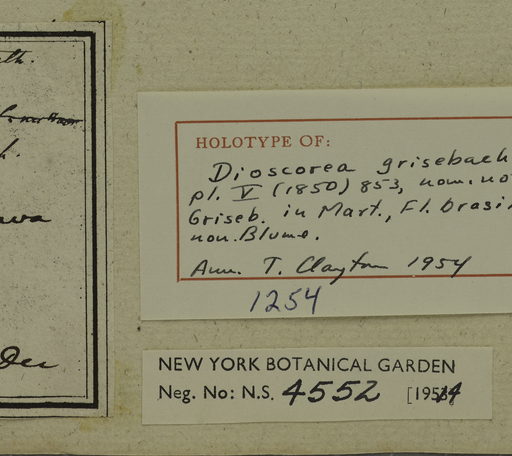 HOLOTYPE OF:
Dioscorea grisebach
pl. V (1850) 853, nom. no
Griseb. in Mart., Fl. brasil
non. Blume.
Ann. T. Clayton 1954
1254
NEW YORK BOTANICAL GARDEN
Neg. No: N.S. 4552 [1954